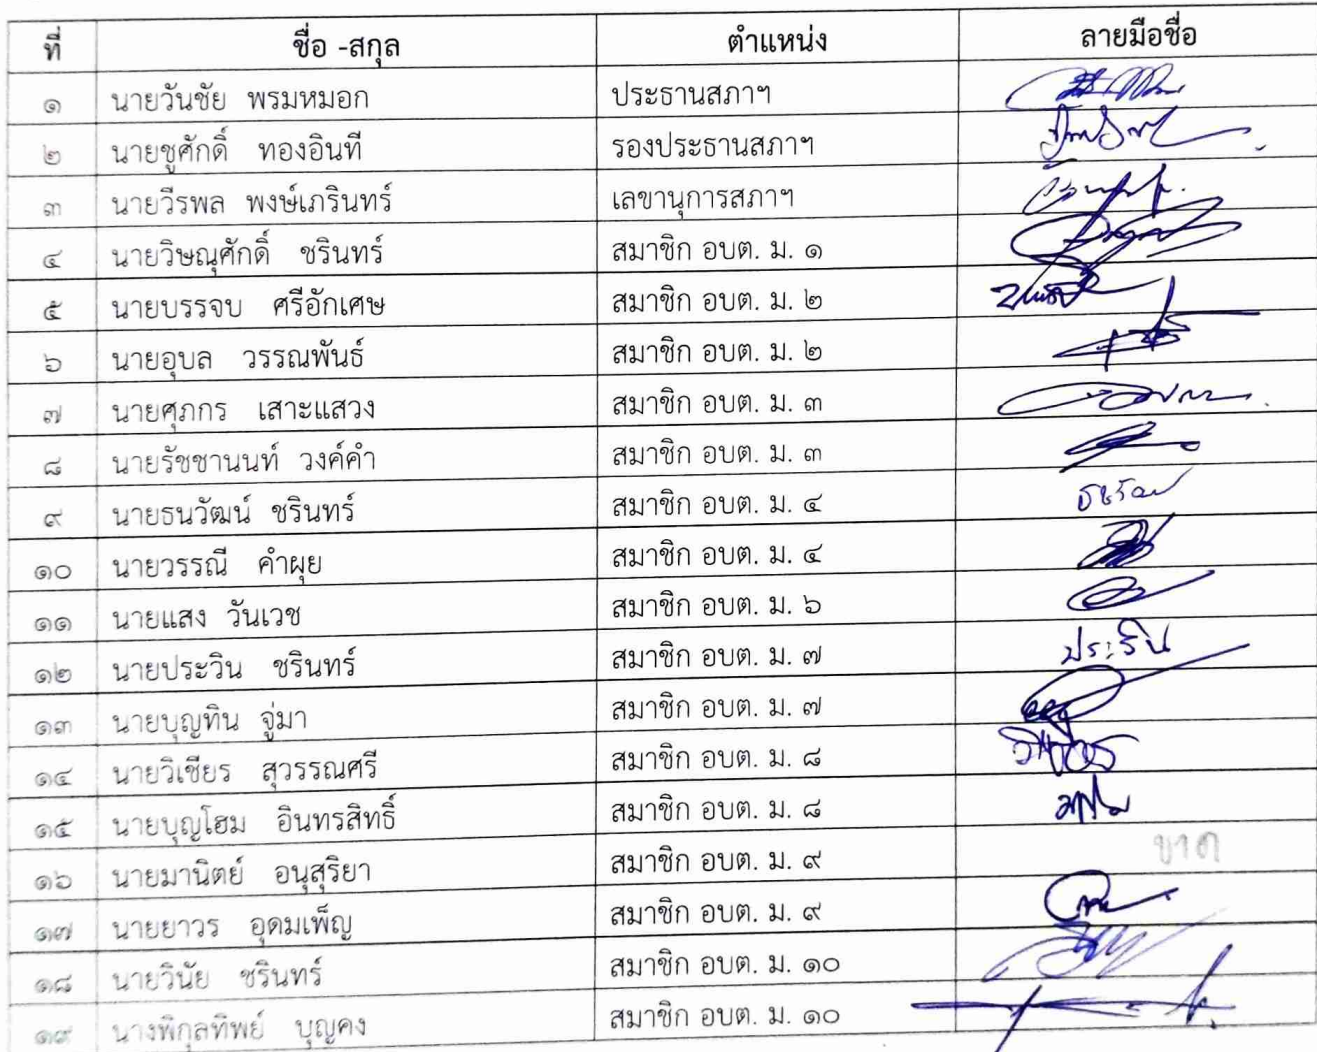 ที่ ชื่อ -สกุล ตำแหน่ง ลายมือชื่อ
๑ นายวันชัย พรมหมอก ประธานสภาฯ
๒ นายชูศักดิ์ ทองอินที รองประธานสภาฯ
๓ นายวีรพล พงษ์เภรินทร์ เลขานุการสภาฯ
๔ นายวิษณุศักดิ์ ชรินทร์ สมาชิก อบต. ม. ๑
๕ นายบรรจบ ศรีอักเศษ สมาชิก อบต. ม. ๒
๖ นายอุบล วรรณพันธ์ สมาชิก อบต. ม. ๒
๗ นายศุภกร เสาะแสวง สมาชิก อบต. ม. ๓
๘ นายรัชชานนท์ วงค์คำ สมาชิก อบต. ม. ๓
๙ นายธนวัฒน์ ชรินทร์ สมาชิก อบต. ม. ๔
๑๐ นายวรรณี คำผุย สมาชิก อบต. ม. ๔
๑๑ นายแสง วันเวช สมาชิก อบต. ม. ๖
๑๒ นายประวิน ชรินทร์ สมาชิก อบต. ม. ๗ ประวิน
๑๓ นายบุญทิน จู่มา สมาชิก อบต. ม. ๗
๑๔ นายวิเชียร สุวรรณศรี สมาชิก อบต. ม. ๘
๑๕ นายบุญโฮม อินทรสิทธิ์ สมาชิก อบต. ม. ๘
๑๖ นายมานิตย์ อนุสุริยา สมาชิก อบต. ม. ๙ ขาด
๑๗ นายยาวร อุดมเพ็ญ สมาชิก อบต. ม. ๙
๑๘ นายวินัย ชรินทร์ สมาชิก อบต. ม. ๑๐
๑๙ นางพิกุลทิพย์ บุญคง สมาชิก อบต. ม. ๑๐